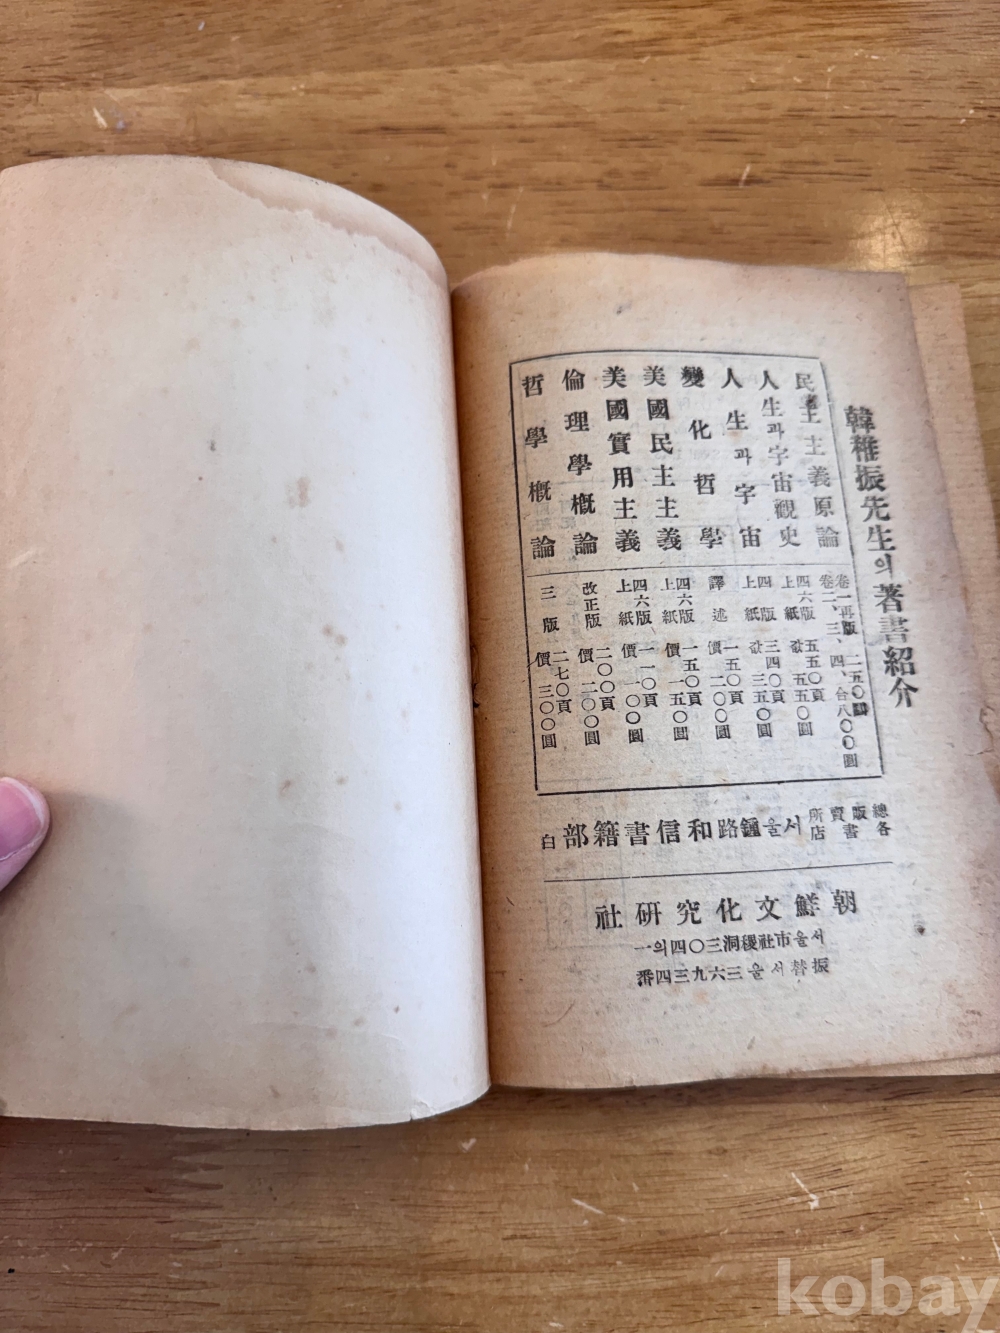 韓稚振先生의著書紹介
民主主義原論 卷一再版 二五〇圓 卷二、三、四、合八〇〇圓
人生과宇宙觀史 四六版 上紙 五五〇頁 값 五五〇圓
人生과宇宙 四版 上紙 三四〇頁 값 三五〇圓
變化哲學 譯述 一五〇頁 價 二〇〇圓
美國民主主義 四六版 上紙 一五〇頁 價 一五〇圓
美國實用主義 四六版 上紙 一一〇頁 價 一〇〇圓
倫理學槪論 改正版 二〇〇頁 價 二〇〇圓
哲學槪論 三版 二七〇頁 價 三〇〇圓
總販賣所 各書店
서울鍾路和信書籍部 白
朝鮮文化究硏社
서울市社稷洞三〇四의一
振替서울三六九三四番
kobay